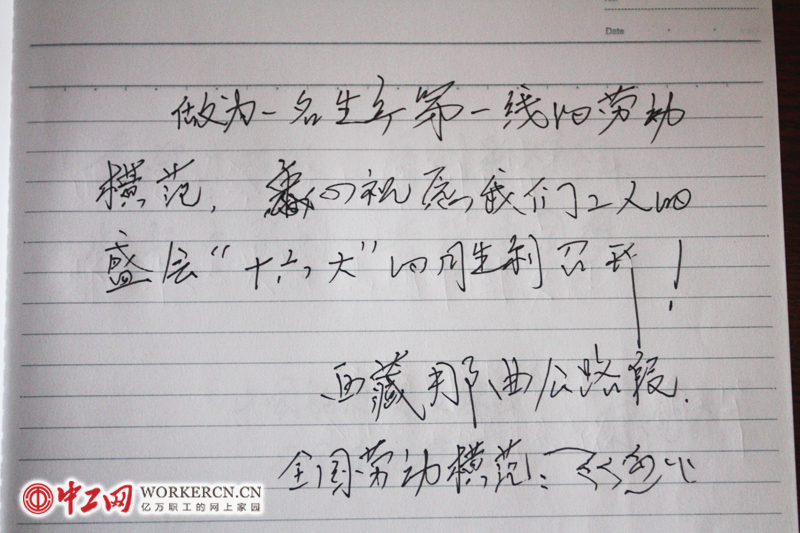 Date
做为一名生产第一线的劳动
模范，衷心祝愿我们工人的
盛会“十六大”的胜利召开！
西藏那曲公路段.
全国劳动模范:
中工网
WORKERCN.CN
亿万职工的网上家园